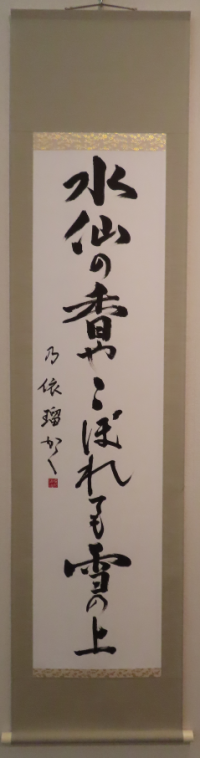 水仙の香やこぼれても雪の上
乃依瑠かく